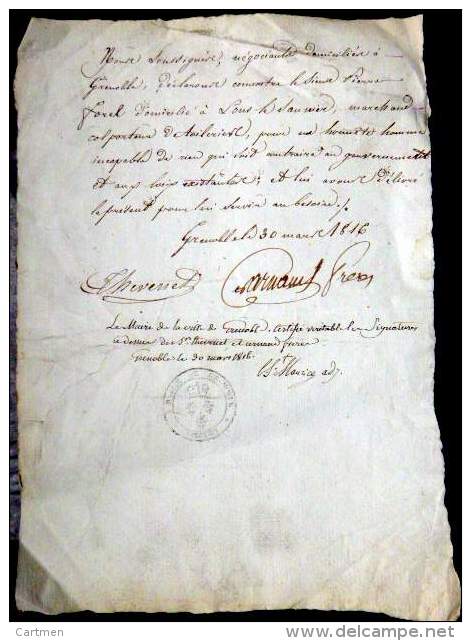 Nous Soussignés, négociants domiciliés à
Grenoble, déclarons connoitre le Sieur Pierre
forel domicilié à Lons-le-Saunier, marchand
colporteur pour un honnête homme
incapable de rien qui soit contraire au gouvernement
et aux loix existantes; et lui avons délivré
le présent pour lui servir au besoin ./.
Grenoble le 30 mars 1816
Thevenet
Le Maire de la ville de Grenoble, certifie véritable les Signatures
ci dessus des Srs thevenet
Grenoble le 30 mars 1816.
adj.
Cartmen
delcampe.net